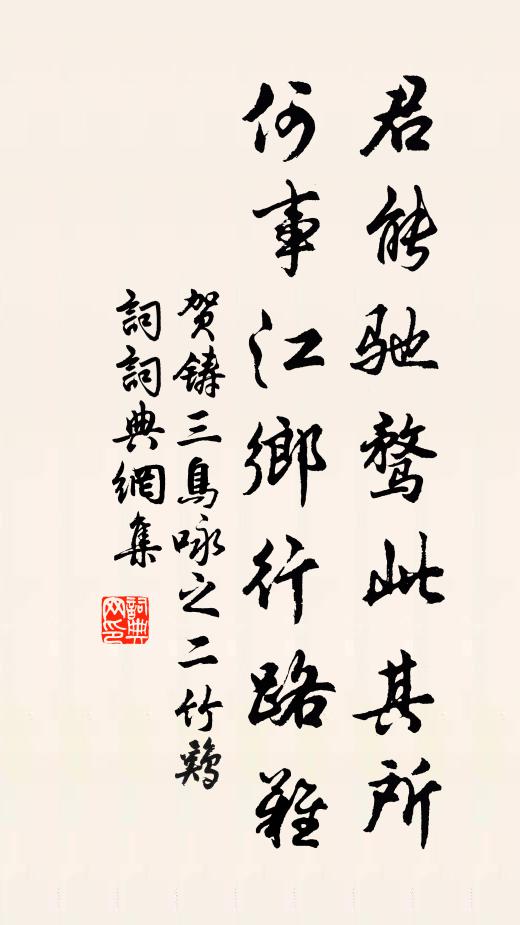 君能驰骛此其所
何事江鄉行路難
贺鑄三鳥咏之二竹鷄
詞詞典網集
詞典网印